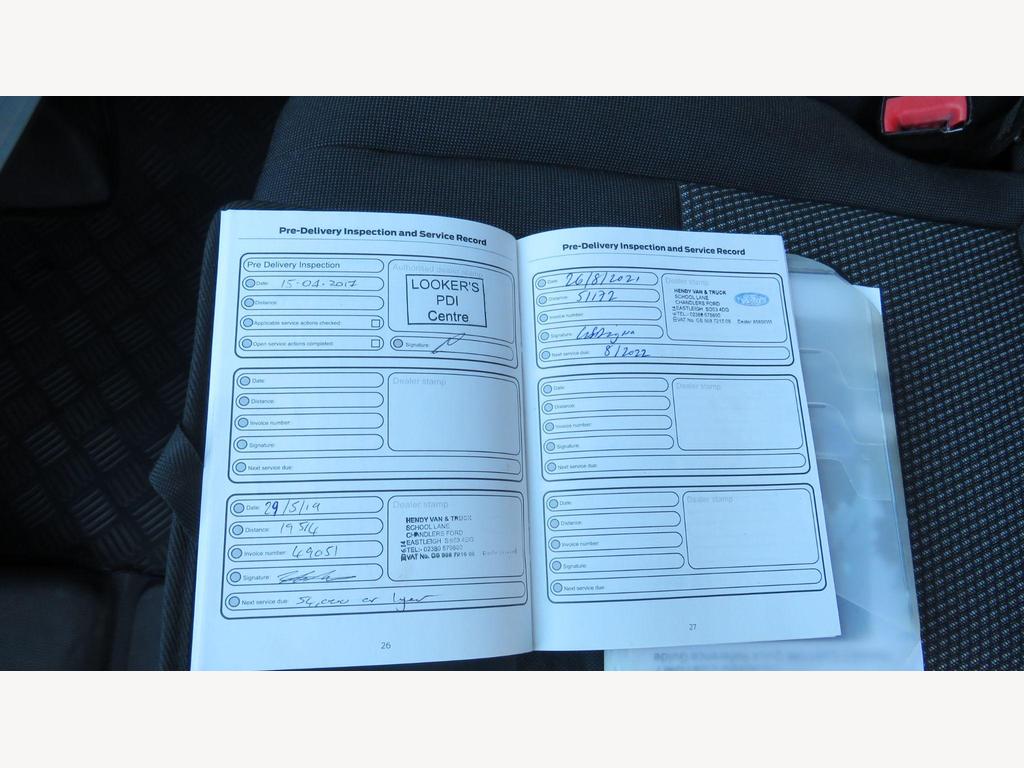 Pre-Delivery Inspection and Service Record
Pre Delivery Inspection
Date: 15-04-2017
Distance:
Applicable service actions checked:
Open service actions completed:
Authorised dealer stamp
LOOKER'S
PDI
Centre
Signature:
Date:
Distance:
Invoice number:
Signature:
Next service due:
Dealer stamp
Date: 29/5/19
Distance: 19514
Invoice number: 49051
Signature:
Next service due: 54,000 or 1yer
Dealer stamp
HENDY VAN & TRUCK
SCHOOL LANE
CHANDLERS FORD
EASTLEIGH SO53 4DG
TEL:- 02380 579800
VAT No. GB 998 7216 08
26
Pre-Delivery Inspection and Service Record
Date: 26/8/2021
Distance: 51172
Invoice number:
Signature:
Next service due: 8/2022
Dealer stamp
HENDY VAN & TRUCK
SCHOOL LANE
CHANDLERS FORD
EASTLEIGH SO53 4DG
TEL:- 02380 579800
VAT No. GB 998 7216 08
Date:
Distance:
Invoice number:
Signature:
Next service due:
Dealer stamp
Date:
Distance:
Invoice number:
Signature:
Next service due:
Dealer stamp
27